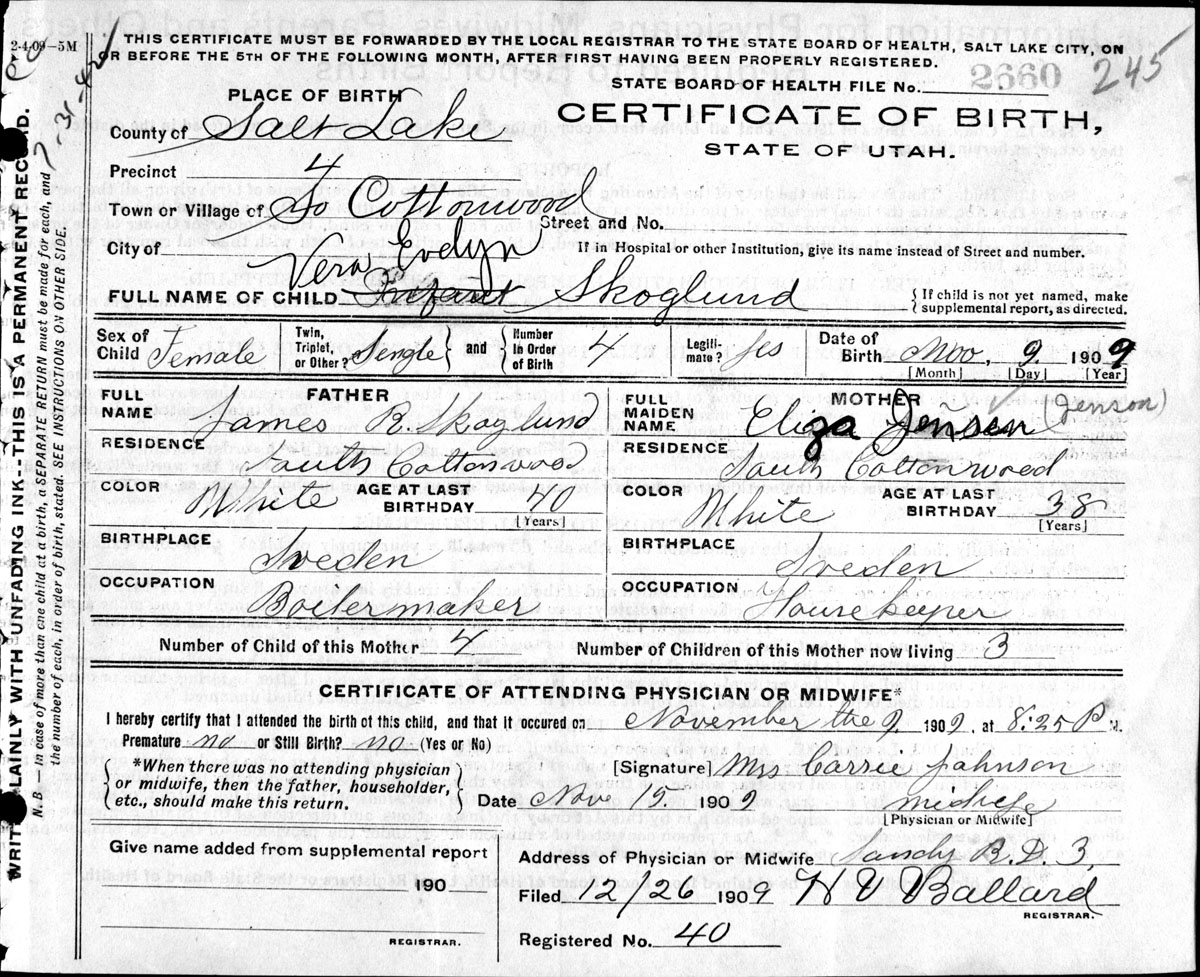 2-4-09-5M
THIS CERTIFICATE MUST BE FORWARDED BY THE LOCAL REGISTRAR TO THE STATE BOARD OF HEALTH, SALT LAKE CITY, ON
OR BEFORE THE 5TH OF THE FOLLOWING MONTH, AFTER FIRST HAVING BEEN PROPERLY REGISTERED.
245
STATE BOARD OF HEALTH FILE No. 2660
PLACE OF BIRTH
CERTIFICATE OF BIRTH,
STATE OF UTAH.
County of Salt Lake
Precinct 4
Town or Village of So Cottonwood
Street and No.
City of
If in Hospital or other Institution, give its name instead of Street and number.
Vera Evelyn
FULL NAME OF CHILD Infant Skoglund
{ If child is not yet named, make
supplemental report, as directed.
Sex of Child Female Twin, Triplet, or Other? Single and Number In Order of Birth 4 Legiti-mate? yes Date of Birth Nov, 9 1909
[Month] [Day] [Year]
FATHER
FULL NAME James R. Skoglund
RESIDENCE South Cottonwood
COLOR White AGE AT LAST BIRTHDAY 40
[Years]
BIRTHPLACE Sweden
OCCUPATION Boilermaker
MOTHER
FULL MAIDEN NAME Eliza Jensen (Jenson)
RESIDENCE South Cottonwood
COLOR White AGE AT LAST BIRTHDAY 38
[Years]
BIRTHPLACE Sweden
OCCUPATION Housekeeper
Number of Child of this Mother 4 Number of Children of this Mother now living 3
CERTIFICATE OF ATTENDING PHYSICIAN OR MIDWIFE*
I hereby certify that I attended the birth of this child, and that it occured on November the 9, 1909, at 8:25 P M.
Premature no or Still Birth? no (Yes or No)
{ *When there was no attending physician
or midwife, then the father, householder,
etc., should make this return. }
[Signature] Mrs Carrie Johnson
Date Nov 15, 1909 midwife
[Physician or Midwife]
Give name added from supplemental report
190
REGISTRAR.
Address of Physician or Midwife Sandy R.D. 3
Filed 12/26 1909 W V Ballard
REGISTRAR.
Registered No. 40
WRITE PLAINLY WITH UNFADING INK-THIS IS A PERMANENT RECORD.
N. B.— In case of more than one child at a birth, a SEPARATE RETURN must be made for each, and
the number of each, in order of birth, stated. SEE INSTRUCTIONS ON OTHER SIDE.